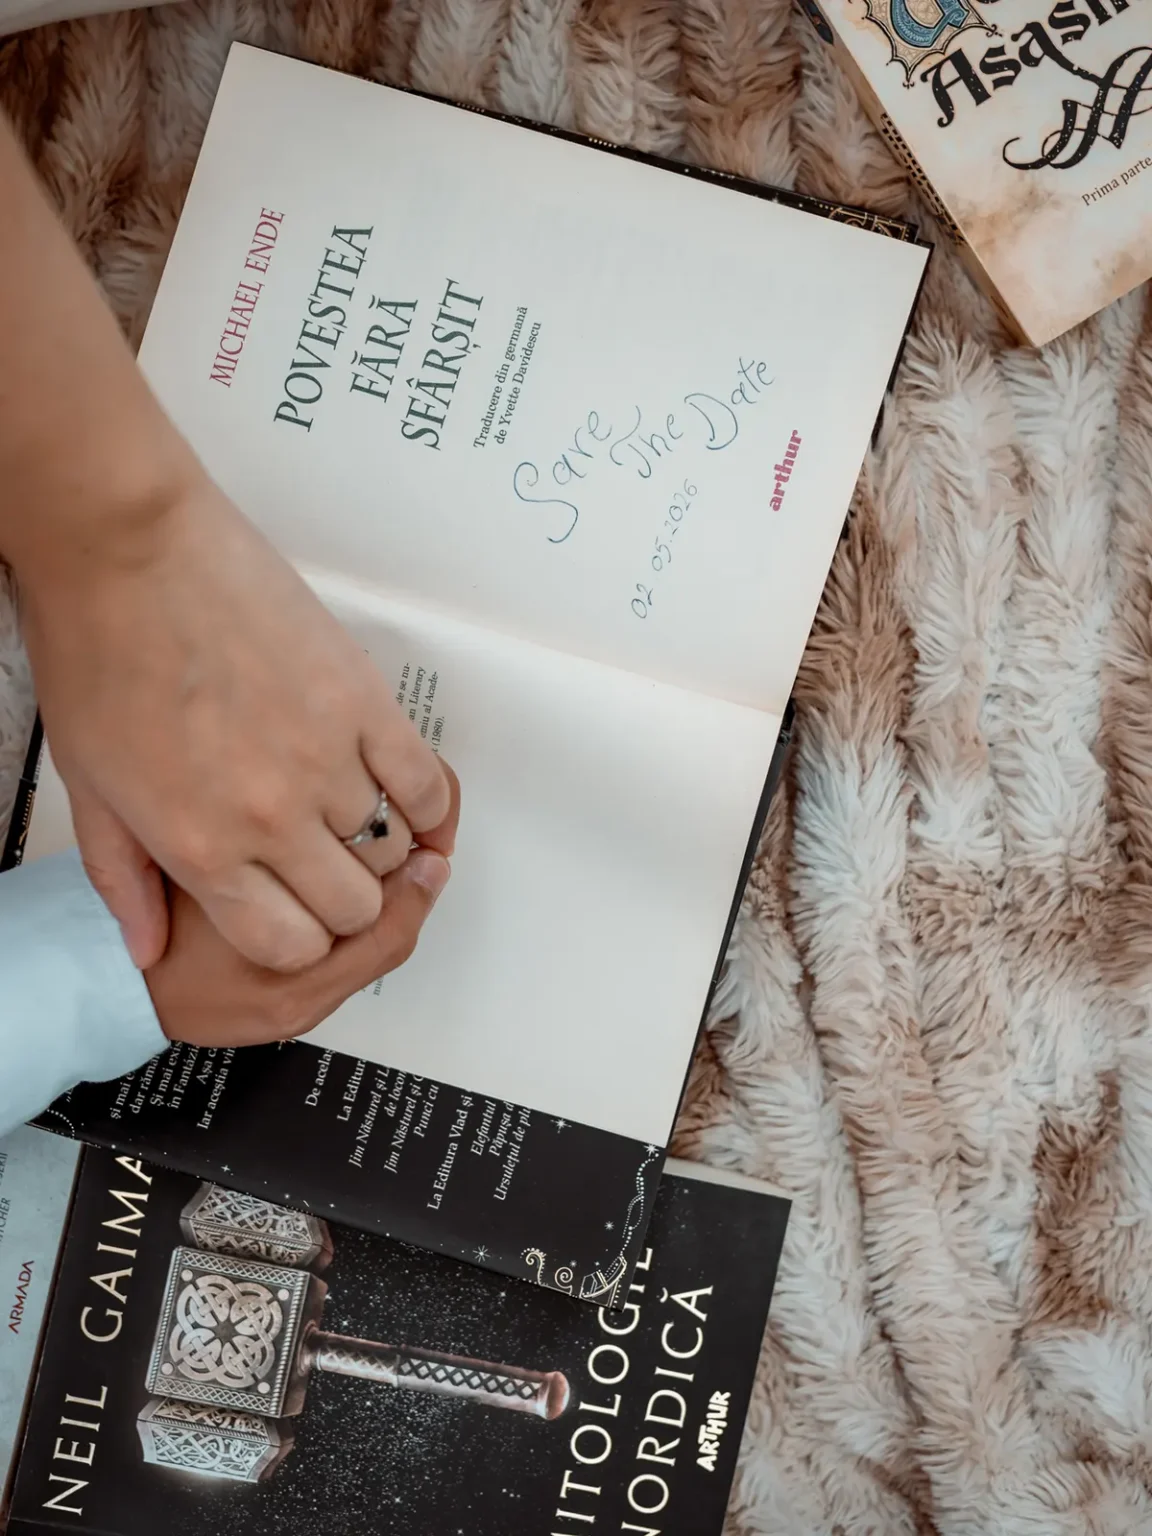 MICHAEL ENDE
POVESTEA
FĂRĂ
SFÂRȘIT
Traducere din germană
de Yvette Davidescu
Save
The
Date
02.05.2026
arthur
Asas
Prima parte
de se nu-
an Literary
emiu al Acade-
(1980).
și mai
dar rămâ
Și mai exis
în Fantázi
Așa
Iar aceștia
De acelaș
La Editur
Jim Năsturel și L
de locom
Jim Năsturel și
Punci cu
La Editura Vlad și
Elefantul
Păpușa d
Ursulețul de plu
NEIL GAIMA
ITOLOGIE
NORDICĂ
ARTHUR
ARMADA